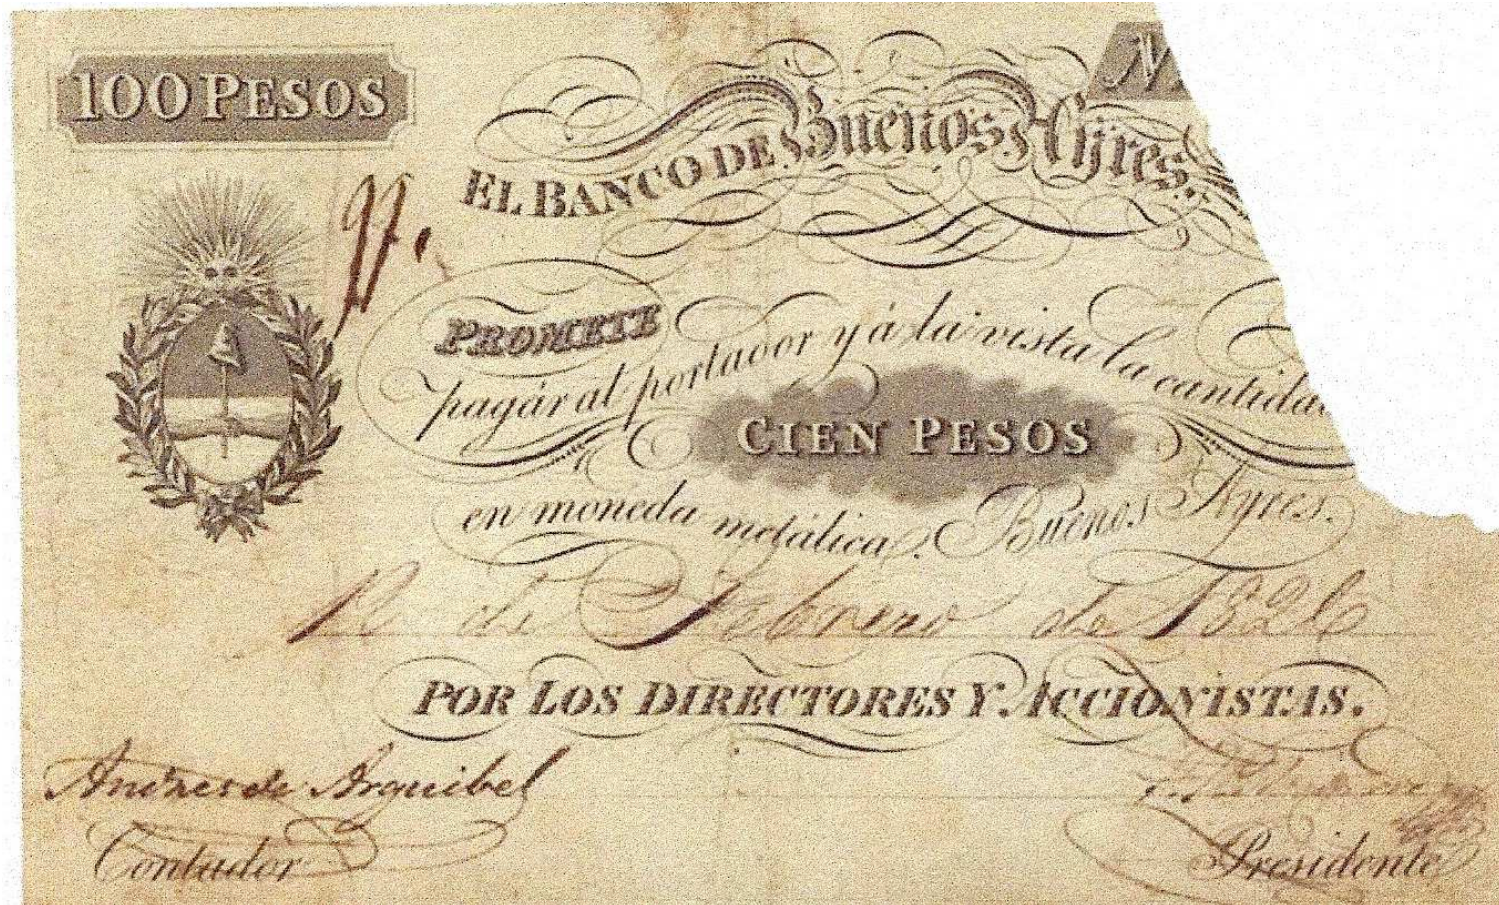 100 PESOS
N
EL BANCO DE Buenos Ayres.
PROMETE
pagár al portador y á la vista la cantida
CIEN PESOS
en moneda metálica. Buenos Ayres.
12 de Febrero de 1826
POR LOS DIRECTORES Y ACCIONISTAS.
Andres de Arguibel
Contador
Presidente